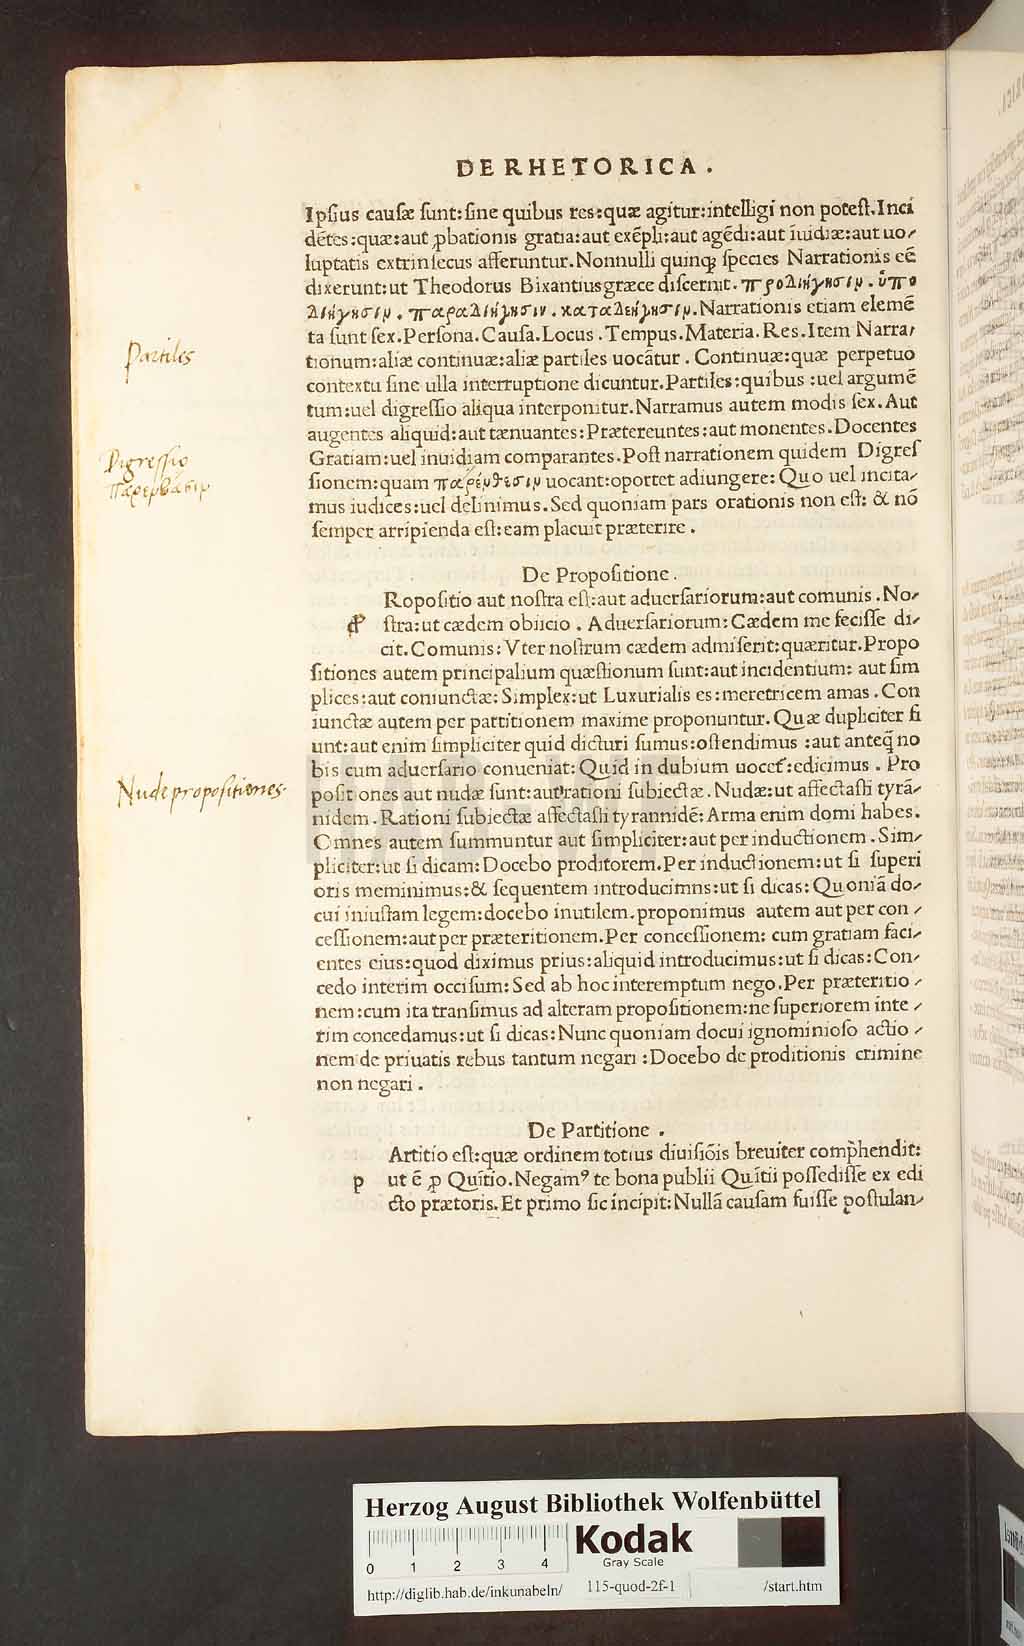 DE RHETORICA .
Ipſius cauſæ ſunt:ſine quibus res:quæ agitur:intelligi non poteſt.Inci
dētes:quæ:aut ꝓbationis gratia:aut exēpli:aut agēdi:aut īuidiæ:aut uo-
luptatis extrinſecus afferuntur.Nonnulli quinqꝫ ſpecies Narrationis eē
dixerunt:ut Theodorus Bixantius græce diſcernit.προδιήγησιν.ὑπο
διήγησιν.παραδιήγησιν.καταδιήγησιν.Narrationis etiam elemē
ta ſunt ſex.Perſona.Cauſa.Locus.Tempus.Materia.Res.Item Narra-
tionum:aliæ continuæ:aliæ partiles uocātur.Continuæ:quæ perpetuo
contextu ſine ulla interruptione dicuntur.Partiles:quibus :uel argumē
tum:uel digreſſio aliqua interponitur.Narramus autem modis ſex.Aut
augentes aliquid:aut tænuantes:Prætereuntes:aut monentes.Docentes
Gratiam:uel inuidiam comparantes.Poſt narrationem quidem Digreſ
ſionem:quam παρένθεσιν uocant:oportet adiungere:Quo uel incita-
mus iudices:uel delinimus.Sed quoniam pars orationis non eſt: & nō
ſemper arripienda eſt:eam placuit præterire.
De Propoſitione.
Ropoſitio aut noſtra eſt:aut aduerſariorum:aut comunis.No-
ſtra:ut cædem obiicio.Aduerſariorum:Cædem me feciſſe di-
cit.Comunis:Vter noſtrum cædem admiſerit:quæritur.Propo
ſitiones autem principalium quæſtionum ſunt:aut incidentium: aut ſim
plices:aut coniunctæ:Simplex:ut Luxurialis es:meretricem amas.Con
iunctæ autem per partitionem maxime proponuntur.Quæ dupliciter fi
unt:aut enim ſimpliciter quid dicturi ſumus:oſtendimus :aut anteq̄ no
bis cum aduerſario conueniat:Quid in dubium uocet:edicimus.Pro
poſitiones aut nudæ ſunt:aut rationi ſubiectæ.Nudæ:ut affectaſti tyrā-
nidem.Rationi ſubiectæ affectaſti tyrannidē:Arma enim domi habes.
Omnes autem ſummuntur aut ſimpliciter:aut per inductionem.Sim-
pliciter:ut ſi dicam:Docebo proditorem.Per inductionem:ut ſi ſuperi
oris meminimus:& ſequentem introducimns:ut ſi dicas:Quoniā do-
cui iniuſtam legem:docebo inutilem.proponimus autem aut per con-
ceſſionem:aut per præteritionem.Per conceſſionem: cum gratiam faci-
entes eius:quod diximus prius:aliquid introducimus:ut ſi dicas:Con-
cedo interim occiſum:Sed ab hoc interemptum nego.Per præteritio-
nem:cum ita tranſimus ad alteram propoſitionem:ne ſuperiorem inte-
rim concedamus:ut ſi dicas:Nunc quoniam docui ignominioſo actio-
nem de priuatis rebus tantum negari :Docebo de proditionis crimine
non negari.
De Partitione .
Artitio eſt:quæ ordinem totius diuiſiōis breuiter comp̄hendit:
p ut ē ꝓ Quītio.Negamꝰ te bona publii Quītii poſſediſſe ex edi
cto prætoris.Et primo ſic incipit:Nullā cauſam fuiſſe poſtulan-
Partiles
Digressio
Nude propositiones.
Herzog August Bibliothek Wolfenbüttel
0 1 2 3 4
Kodak
Gray Scale
http://diglib.hab.de/inkunabeln/ 115-quod-2f-1 /start.htm